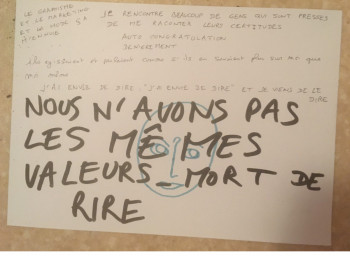 LE GRAPHISME
ET LE MARKETING
ET LE MOTS SA
JE RENCONTRE BEAUCOUP DE GENS QUI SONT PRESSES
DE ME RACONTER LEURS CERTITUDES
AUTO CONGRATULATION
DENIGREMENT
et parlent comme si ils en savaient plus sur moi que
moi même
J'AI ENVIE DE DIRE "J'AI ENVIE DE DIRE" ET JE VIENS DE LE
DIRE
NOUS N'AVONS PAS
LES MÊMES
VALEURS_MORT DE
RIRE